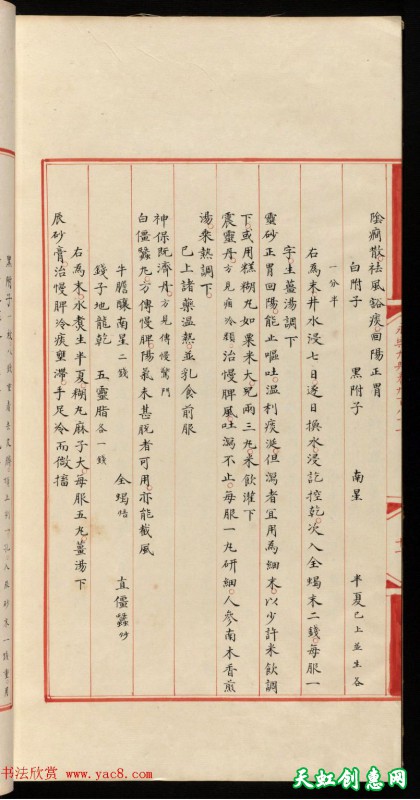 陰癇散祛風豁痰回陽正胃
白附子 黑附子 南星 半夏已上並生各
一分半
右為末井水浸七日逐日換水浸訖控乾次入全蝎末二錢每服一
字生薑湯調下
靈砂正胃回陽能止嘔吐溫利痰涎但瀉者宜用為細末以少許米飲調
下或用糕糊丸如粟米大兒兩三丸米飲灌下
震靈丹方見痼冷類治慢脾風吐瀉不止每服一丸研細人參南木香煎
湯乘熱調下
已上諸藥溫熱並乳食前服
神保阮濟丹方見傳慢驚門
白僵蠶丸方傳慢脾陽氣未甚脫者可用亦能截風
牛膽釀南星二錢 全蝎焙 直僵蠶炒
錢子地龍乾 五靈脂各一錢
右為末水煑生半夏糊丸麻子大每服五丸薑湯下
辰砂膏治慢脾冷痰壅滯手足冷而微搐
黑附子
书法欣赏 www.yac8.com
天虹创惠网